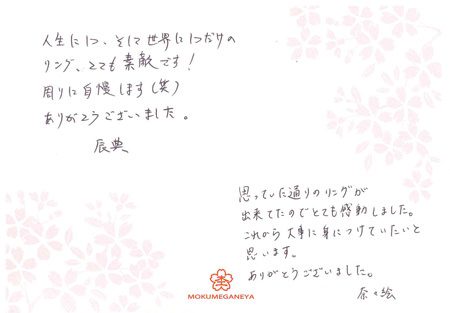 人生に1つ、そして世界に1つだけの
リング、とても素敵です！
周りに自慢します(笑)
ありがとうございました。
辰典
思っていた通りのリングが
出来てたのでとても感動しました。
これから大事に身につけていたいと
思います。
ありがとうございました。
奈々絵
MOKUMEGANEYA